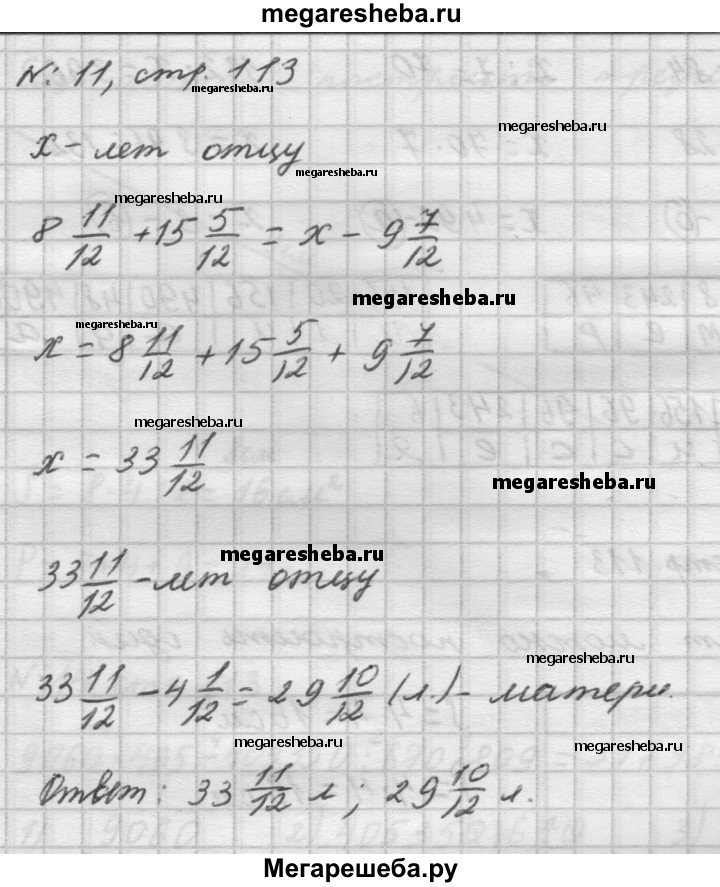 megaresheba.ru
№ 11, стр. 113
megaresheba.ru
megaresheba.ru
x - лет отцу
megaresheba.ru
megaresheba.ru
8 11/12 + 15 5/12 = x - 9 7/12
megaresheba.ru
megaresheba.ru
x = 8 11/12 + 15 5/12 + 9 7/12
megaresheba.ru
x = 33 11/12
megaresheba.ru
megaresheba.ru
33 11/12 - лет отцу
megaresheba.ru
33 11/12 - 4 1/12 = 29 10/12 (л.) - матери.
megaresheba.ru
megaresheba.ru
Ответ: 33 11/12 л ; 29 10/12 л.
Мегарешеба.ру